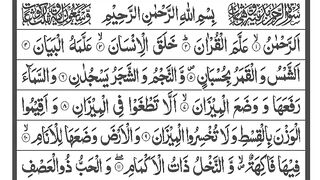 بِسْمِ اللّٰهِ الرَّحْمٰنِ الرَّحِيْمِ
اَلرَّحْمٰنُ ۙ‏﴿۱﴾ عَلَّمَ الْقُرْاٰنَ ؕ‏﴿۲﴾ خَلَقَ الْاِنْسَانَ ۙ‏﴿۳﴾ عَلَّمَهُ الْبَيَانَ ﴿۴﴾
اَلشَّمْسُ وَ الْقَمَرُ بِحُسْبَانٍ ۪‏﴿۵﴾ وَّ النَّجْمُ وَ الشَّجَرُ يَسْجُدٰنِ ﴿۶﴾ وَ السَّمَآءَ
رَفَعَهَا وَ وَضَعَ الْمِيْزَانَ ۙ‏﴿۷﴾ اَلَّا تَطْغَوْا فِي الْمِيْزَانِ ﴿۸﴾ وَ اَقِيْمُوا
الْوَزْنَ بِالْقِسْطِ وَ لَا تُخْسِرُوا الْمِيْزَانَ ﴿۹﴾ وَ الْاَرْضَ وَضَعَهَا لِلْاَنَامِ ۙ‏﴿۱۰﴾
فِيْهَا فَاكِهَةٌ ۪ۙ وَّ النَّخْلُ ذَاتُ الْاَكْمَامِ ۖ‏﴿۱۱﴾ وَ الْحَبُّ ذُو الْعَصْفِ